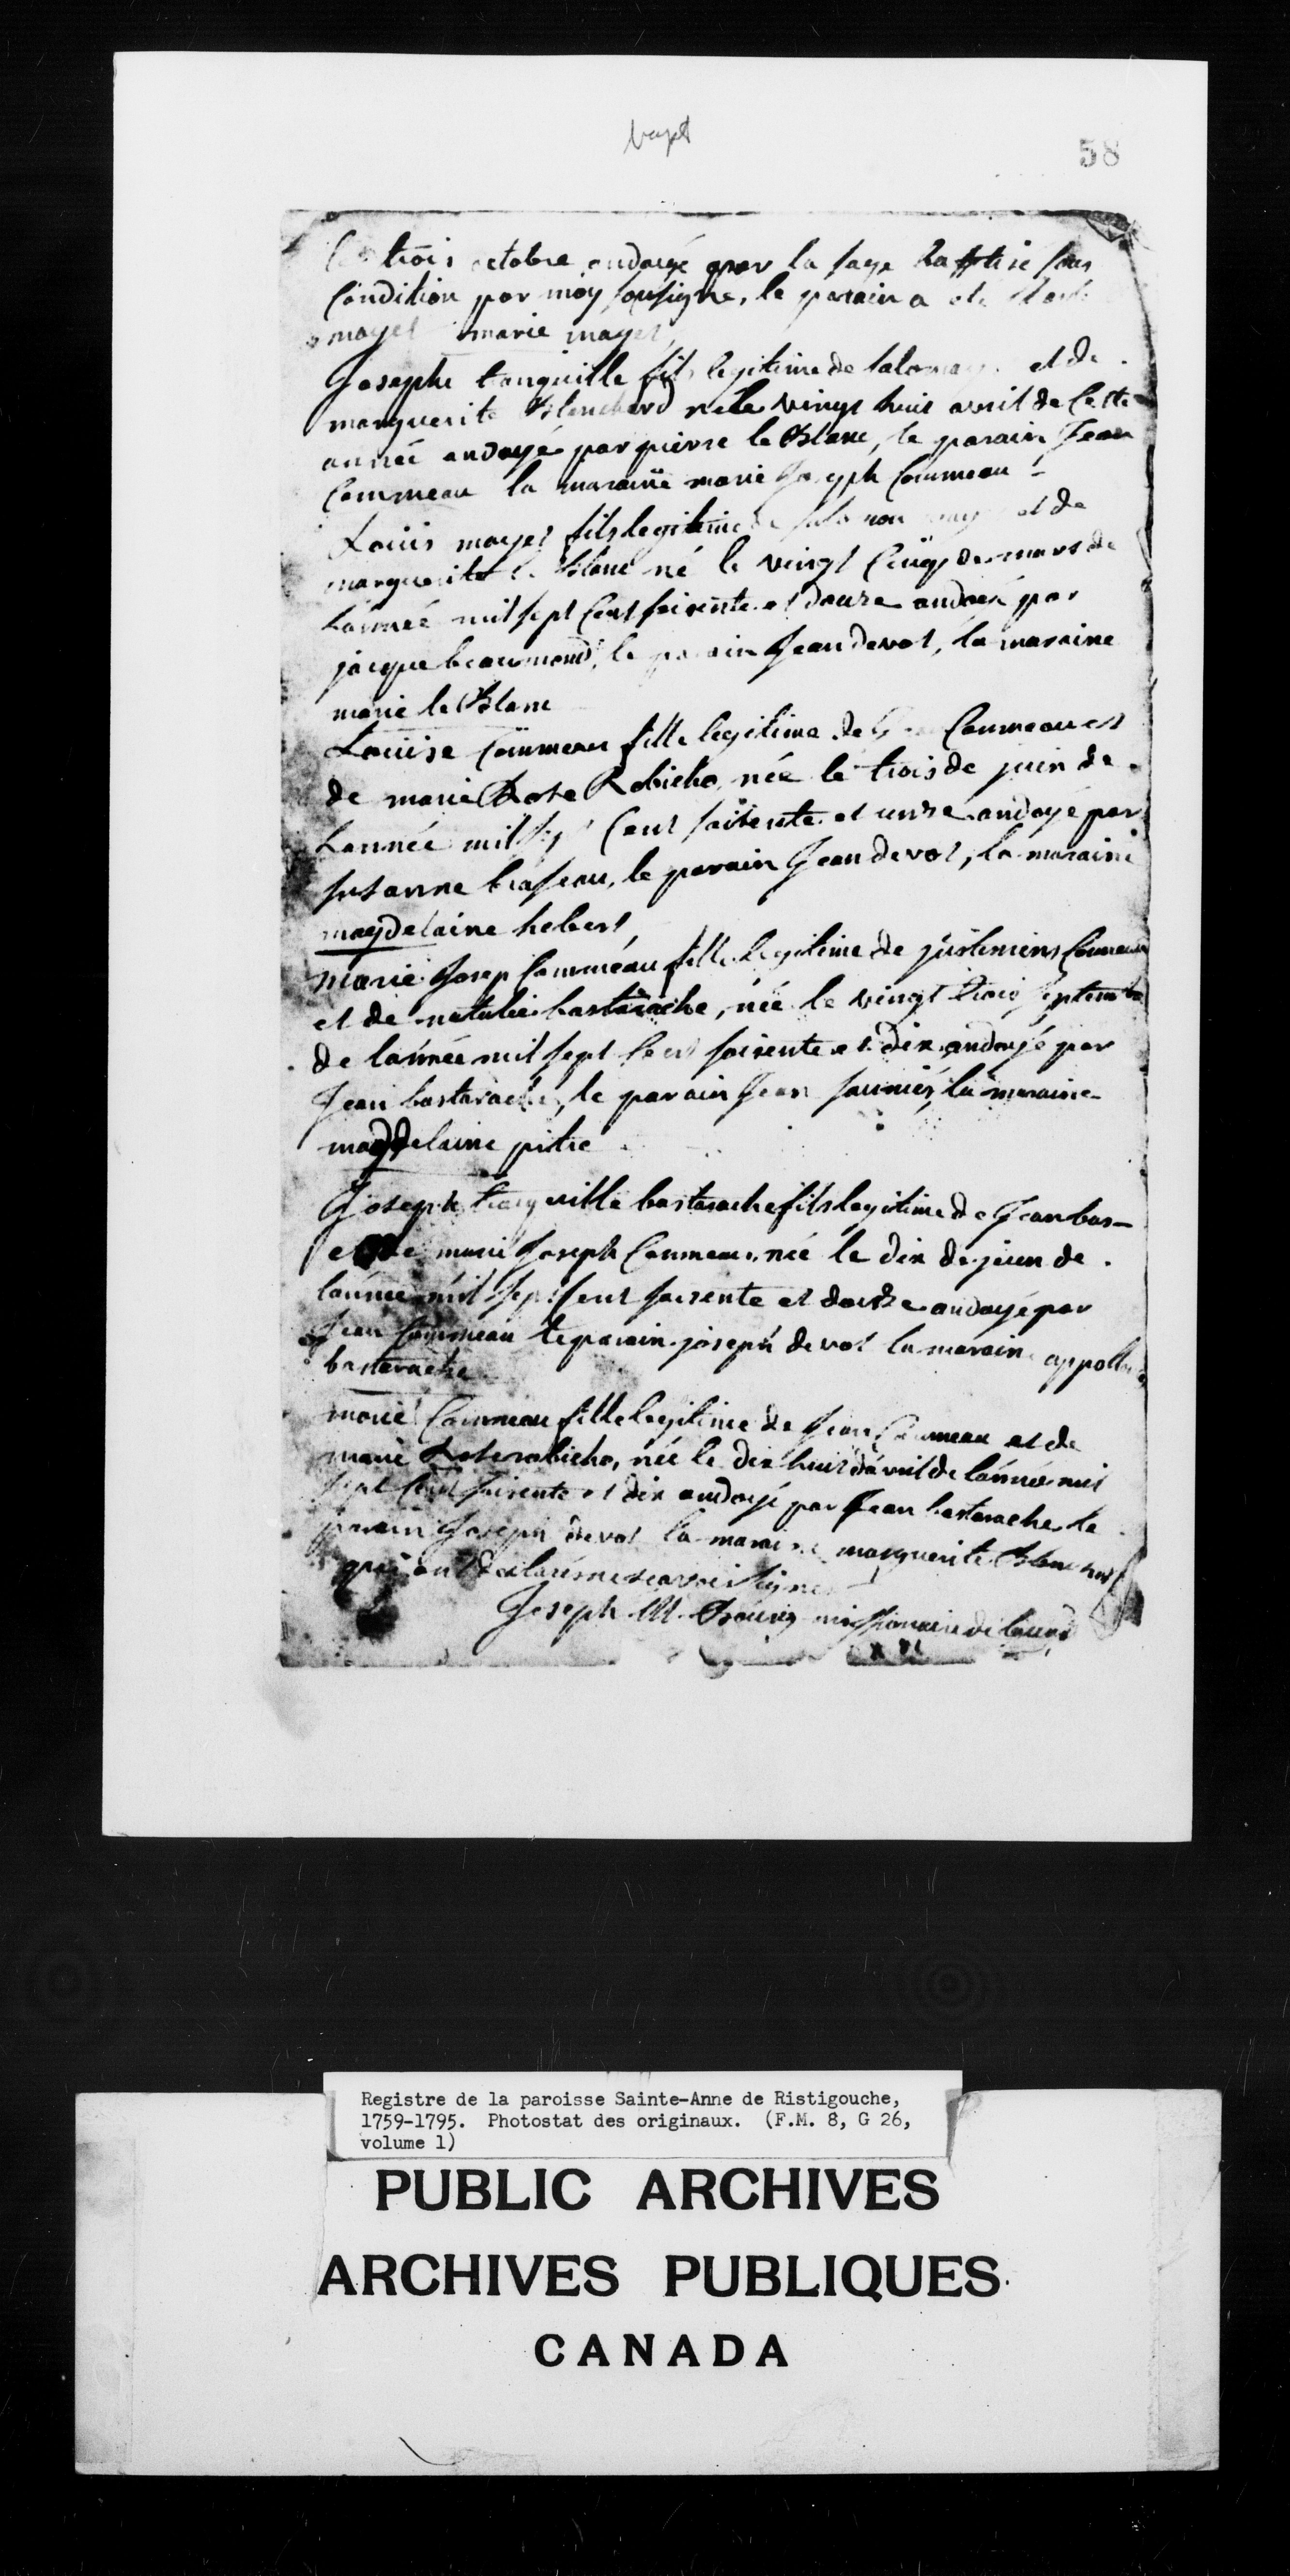 bapt
58
trois octobre ondoyé par la sage baptisé sous
Condition par moy sousigne, le parain a eté
mayet marie mayet
Josephe tranquille fils legitime de Salomon et de
marguerite Blenchard né le vingt huit avril de Cette
année andoyé par pierre le Blanc, le parain Jean
Commeau la maraine marie Joseph Commeau
Louis mayet fils legitime de Salomon may et de
marguerite le Blanc né le vingt Cinq de mars de
Lánnée mil sept Cent soisente et douze andoié par
jacque beaumond, le parain Jean devot, la maraine
marie le Blanc
Louise Commeau fille legitime de Commeau et
de marie Rose Robicho, née le trois de juin de
Lannée mil sept Cent soisente et unze andoyé par
susanne braseau, le parain Jean devot, la maraine
magdelaine hebert
Marie Josep Commeau fille legitime de justiniens Commeau
et de natalie bastarache, née le vingt trois septembre
de lánnée mil sept Cent soisente et dix andoyé par
Jean bastarache, le parain Jean saunier, la maraine
magdelaine pitre
Joseph tranquille bastarache fils legitime de Jean bas-
et de marie Joseph Commeau, née le dix de juen de
lánnée mil sept Cent soisente et douze andoyé par
Jean Commeau le parain joseph devot la maraine appolline
bastarache
marie Commeau fille legitime de Jean Commeau et de
marie Rose robicho, née le dix huit d'avril de lánnée mil
sept Cent soisente et dix andoyé par Jean bastarache le
parain Joseph devot la maraine marguerite Blenchard
qui ont declaré ne scavoir signer
Joseph M. Bourg missionaire de
Registre de la paroisse Sainte-Anne de Ristigouche,
1759-1795. Photostat des originaux. (F.M. 8, G 26,
volume 1)
PUBLIC ARCHIVES
ARCHIVES PUBLIQUES
CANADA